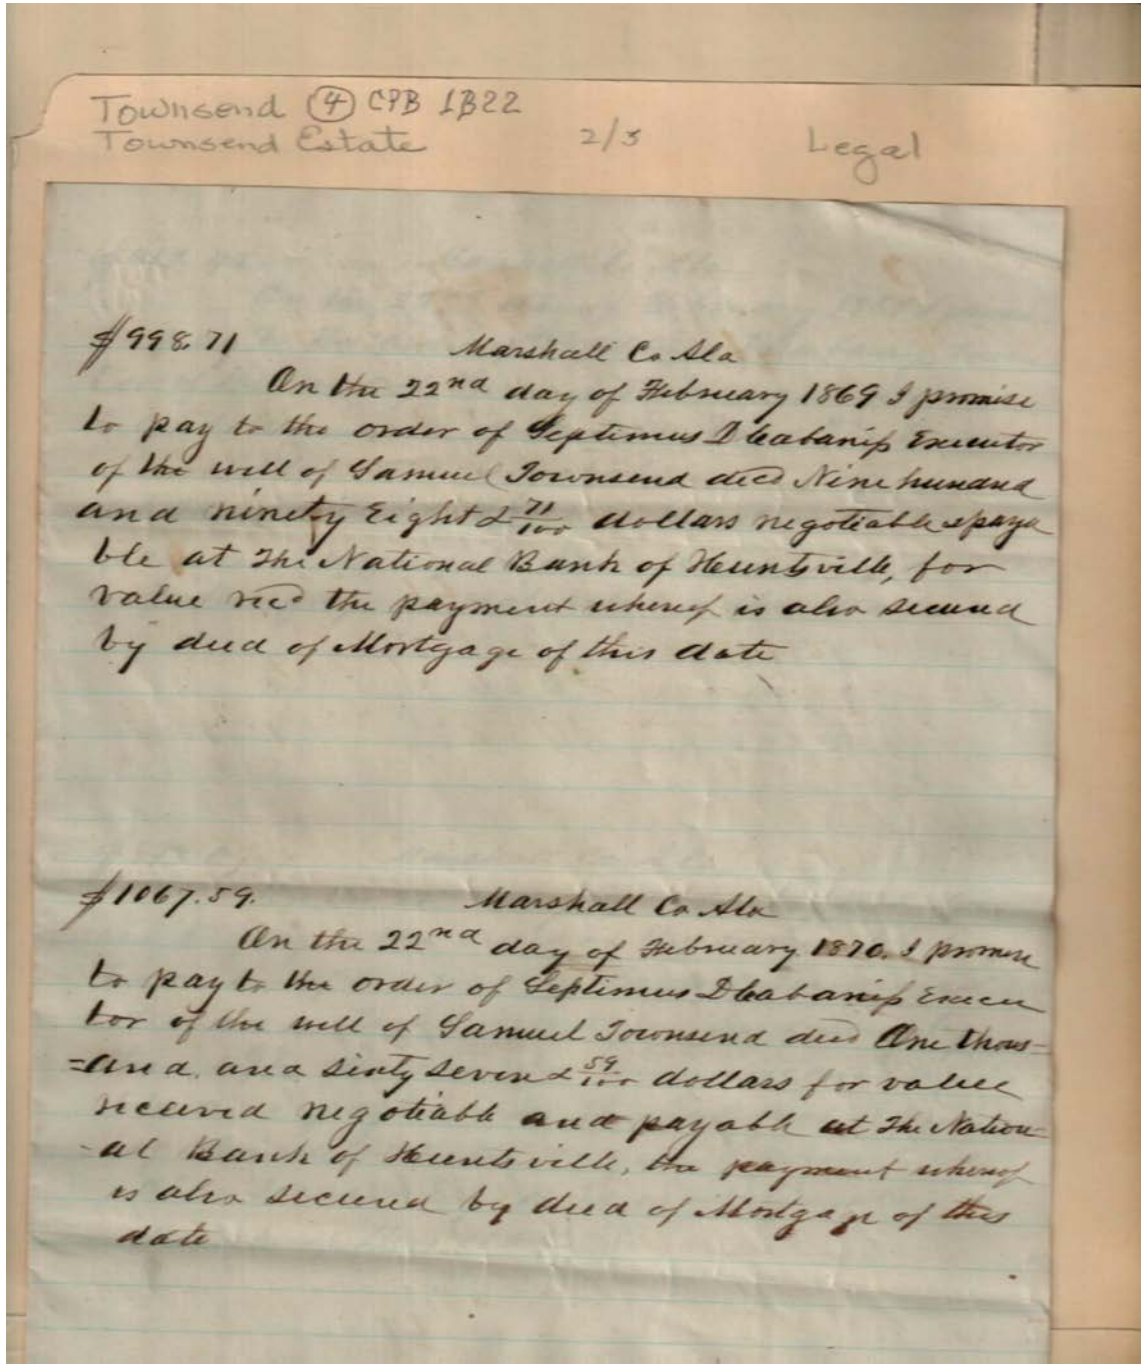 Townsend ④ CPB 1B22
Townsend Estate 2/3 Legal
$998.71 Marshall Co Ala
On the 22nd day of February 1869 I promise
to pay to the order of Septimus D Cabaniss Executor
of the will of Samuel Townsend decd Nine hundred
and ninety Eight & 71/100 dollars negotiable & paya
ble at The National Bank of Huntsville, for
value recd the payment whereof is also secured
by deed of Mortgage of this date
$1067.59. Marshall Co Ala
On the 22nd day of February 1870. I promise
to pay to the order of Septimus D Cabaniss Execu
tor of the will of Samuel Townsend decd One thous-
=and and sixty seven & 59/100 dollars for value
received negotiable and payable at The Nation-
-al Bank of Huntsville, the payment whereof
is also secured by deed of Mortgage of this
date